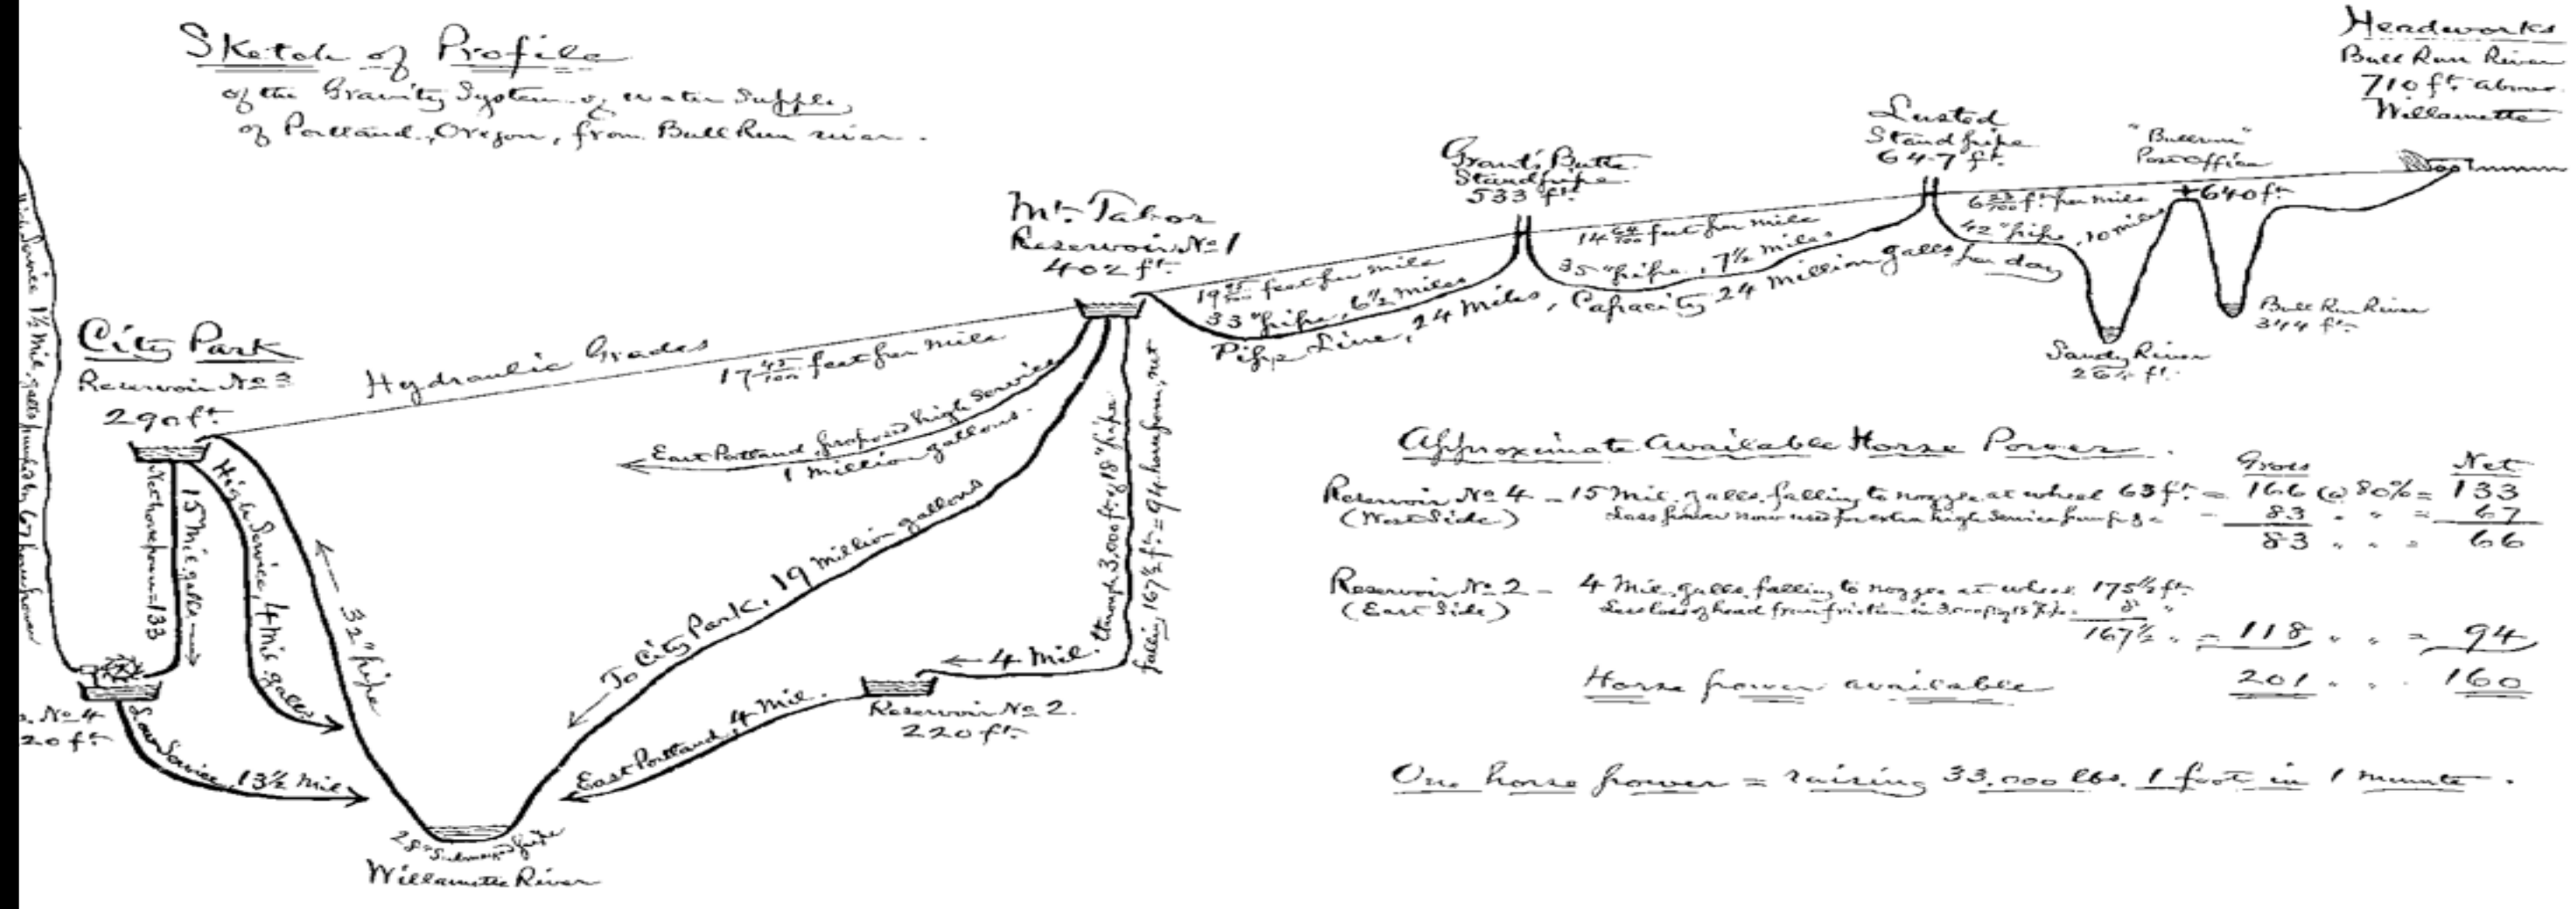 Sketch of Profile
of the Gravity System of water Supply
of Portland, Oregon, from Bull Run river.
Headworks
Bull Run River
710 ft. above
Willamette
"Bullrun"
Post Office
+640 ft.
Lusted
Standpipe
647 ft.
Grant's Butte
Standpipe
533 ft.
Mt. Tabor
Reservoir No 1
402 ft.
City Park
Reservoir No 3
290 ft.
Hydraulic Grades
17 45/100 feet per mile
19 95/100 feet per mile
33" pipe, 6½ miles
14 64/100 feet per mile
35" pipe, 7½ miles
ft. per mile
42" pipe, 10 miles
Pipe Line, 24 miles, Capacity 24 million galls per day
Bull Run River
Sandy River
East Portland proposed high Service
1 million gallons.
To City Park, 19 million gallons
4 Mil. through 3,000 ft. of 18" pipe
falling 167½ ft = 94 horse power, net
Reservoir No 2.
220 ft.
East Portland, 4 Mil.
32" pipe
High Service, 4 Mil. galls.
15 Mil. galls
Net horse power = 133
High Service 1½ Mil. galls pumped by 67 horse power
No 4
20 ft.
Low Service, 13½ Mil
28" Submerged pipe
Willamette River
Approximate Available Horse Power.
Gross Net
Reservoir No 4 - 15 Mil. galls. falling to nozzle at wheel 63 ft. = 166 @ 80% = 133
(West Side) Less power now used for extra high Service pumping = 83 " " = 67
83 " " = 66
Reservoir No 2 - 4 Mil. galls. falling to nozzle at wheel 175½ ft.
(East Side) Less loss of head from friction in 3000 ft of 18" pipe. 8 "
167½ " = 118 " " = 94
Horse power available 201 " " 160
One horse power = raising 33,000 lbs. 1 foot in 1 minute.